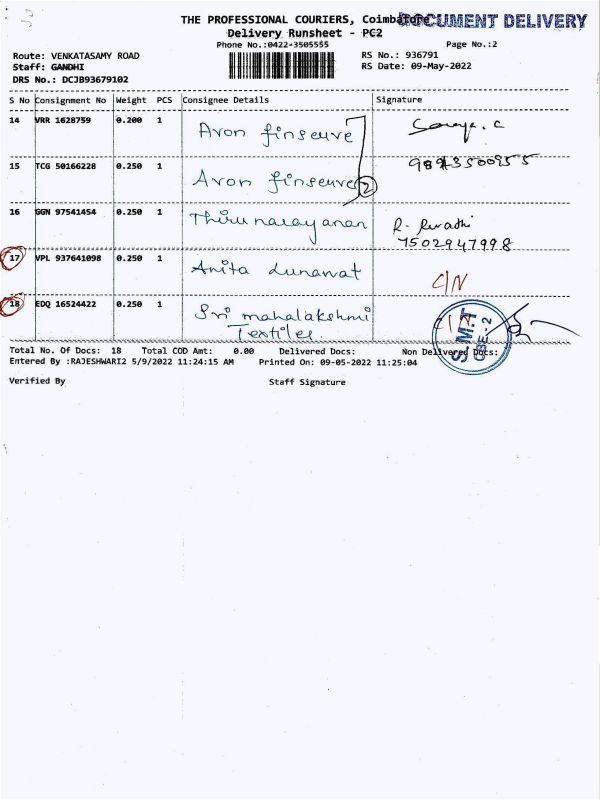 THE PROFESSIONAL COURIERS, Coimbatore
DOCUMENT DELIVERY
Delivery Runsheet - PC2
Phone No.:0422-3505555
Page No.:2
Route: VENKATASAMY ROAD
RS No.: 936791
Staff: GANDHI
RS Date: 09-May-2022
DRS No.: DCJB93679102
S No Consignment No Weight PCS Consignee Details Signature
14 VRR 1628759 0.200 1 Avon finserve
15 TCG 50166228 0.250 1 Avon finserve 2
16 GGN 97541454 0.250 1 Thirunarayanan R. Revathi
7502947998
17 VPL 937641098 0.250 1 Anita Lunawat C/N
18 EDQ 16524422 0.250 1 Sri mahalakshmi
Textiles
S.M.T
CBE-2
Total No. Of Docs: 18 Total COD Amt: 0.00 Delivered Docs: Non Delivered Docs:
Entered By :RAJESHWARI2 5/9/2022 11:24:15 AM Printed On: 09-05-2022 11:25:04
Verified By Staff Signature